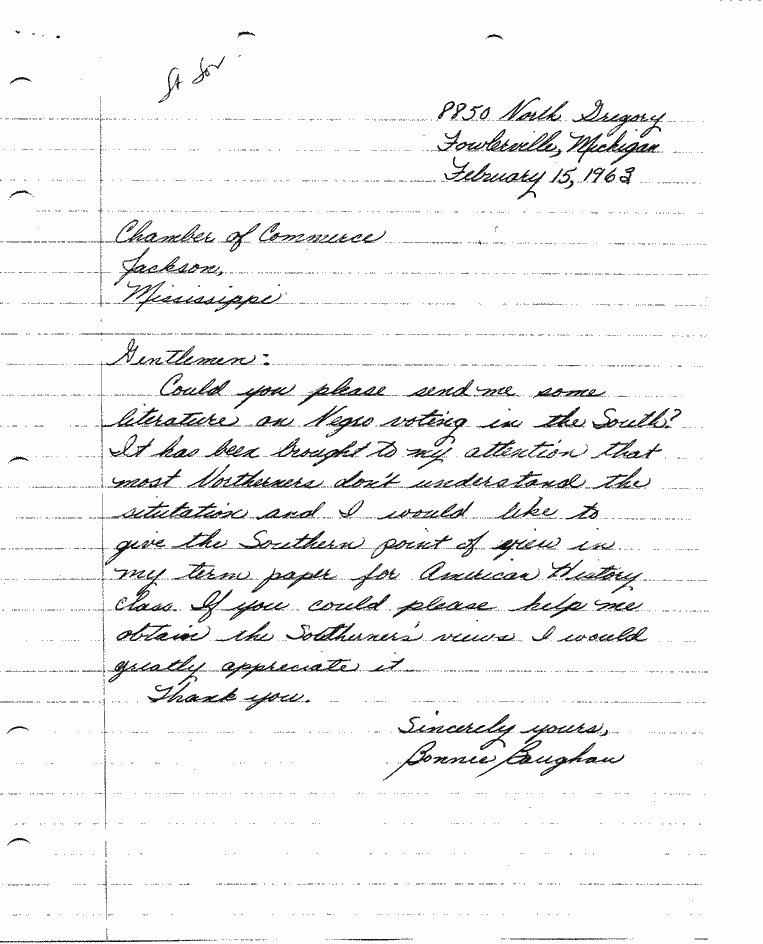 St Sov
8850 North Gregory
Fowlerville, Michigan
February 15, 1963
Chamber of Commerce
Jackson,
Mississippi
Gentlemen:
Could you please send me some
literature on Negro voting in the South?
It has been brought to my attention that
most Northerners don't understand the
situtation and I would like to
give the Southern point of view in
my term paper for American History
class. If you could please help me
obtain the Southerner's views I would
greatly appreciate it.
Thank you.
Sincerely yours,
Bonnie Baughan